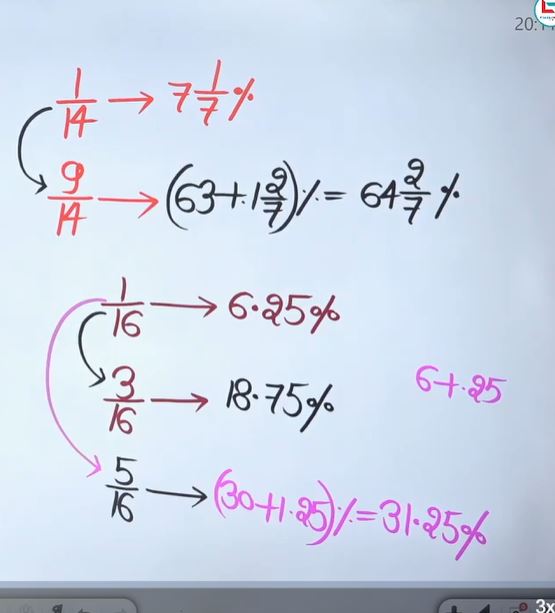 20:1
1/14 → 7 1/7 %
9/14 → (63+1 2/7)% = 64 2/7 %
1/16 → 6.25%
3/16 → 18.75%
6+.25
5/16 → (30+1.25)% = 31.25%
3x